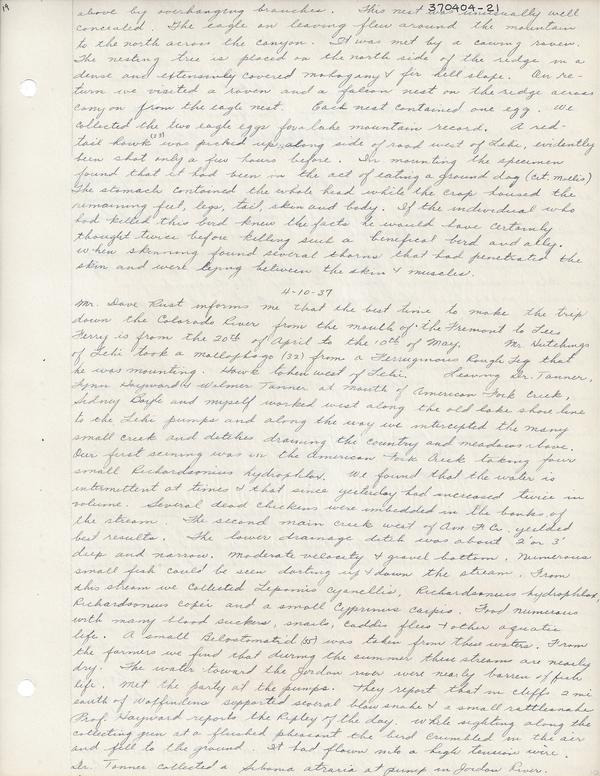 19
370404-21
above by overhanging branches. This nest unusually well
concealed. The eagle on leaving flew around the mountain
to the north across the canyon. It was met by a cawing raven.
The nesting tree is placed on the north side of the ridge in a
dense and extensively covered mahogany & fir hell slope. On re-
turn we visited a raven and a falcon nest on the ridge across
canyon from the eagle nest. Each nest contained one egg. We
collected the two eagle eggs for a lake mountain record. A red-
tail hawk (53) was picked up along side of road west of Lehi, evidently
been shot only a few hours before. In mounting the specimen
found that it had been in the act of eating a ground dog (Cit. mollis)
The stomach contained the whole head while the crop housed the
remaining feet, legs, tail, skin and body. If the individual who
had killed this bird knew the facts he would have certainly
thought twice before killing such a benefical bird and ally.
When skinning found several thorns that had penetrated the
skin and were lying between the skin & muscles.
4-10-37
Mr. Dave Rust informs me that the best time to make the trip
down the Colorado River from the mouth of the Fremont to Lees
Ferry is from the 20th of April to the 10th of May. Mr Hutchings
of Lehi took a mallophaga (32) from a Ferruginous Rough Leg that
he was mounting. Hawk taken west of Lehi. Leaving Dr. Tanner,
Lynn Hayward & Wilmer Tanner at mouth of American Fork Creek,
Sidney Boyle and myself worked west along the old lake shore line
to the Lehi pumps and along the way we intercepted the many
small creek and ditches draining the country and meadows above.
Our first seining was in the American Fork Creek taking four
small Richardsonius hydrophlox. We found that the water is
intermittent at times & that since yesterday had increased twice in
volume. Several dead chickens were imbedded in the banks of
the stream. The second main creek west of Am F Cr. yielded
best results. The lower drainage ditch was about 2' or 3'
deep and narrow. Moderate velocity & gravel bottom. Numerous
small fish could be seen darting up & down the stream. From
this stream we collected Lepomis cyanellis, Richardsonius hydrophlox,
Richardsonius copei and a small Cyprinus carpio. Food numerous
with many blood suckers, snails, caddis flies & other aquatic
life. A small Belostomatid (55) was taken from these waters. From
the farmers we find that during the summer these streams are nearly
dry. The water toward the Jordan river were nearly barren of fish
life. Met the party at the pumps. They report that in cliffs 2 mi
south of supported several blow snake & a small rattlesnake
Prof. Hayward reports the Ripley of the day. While sighting along the
collecting gun at a flushed pheasant the bird crumbled in the air
and fell to the ground. It had flown into a high tension wire.
Dr. Tanner collected a atraria at pump in Jordon River.